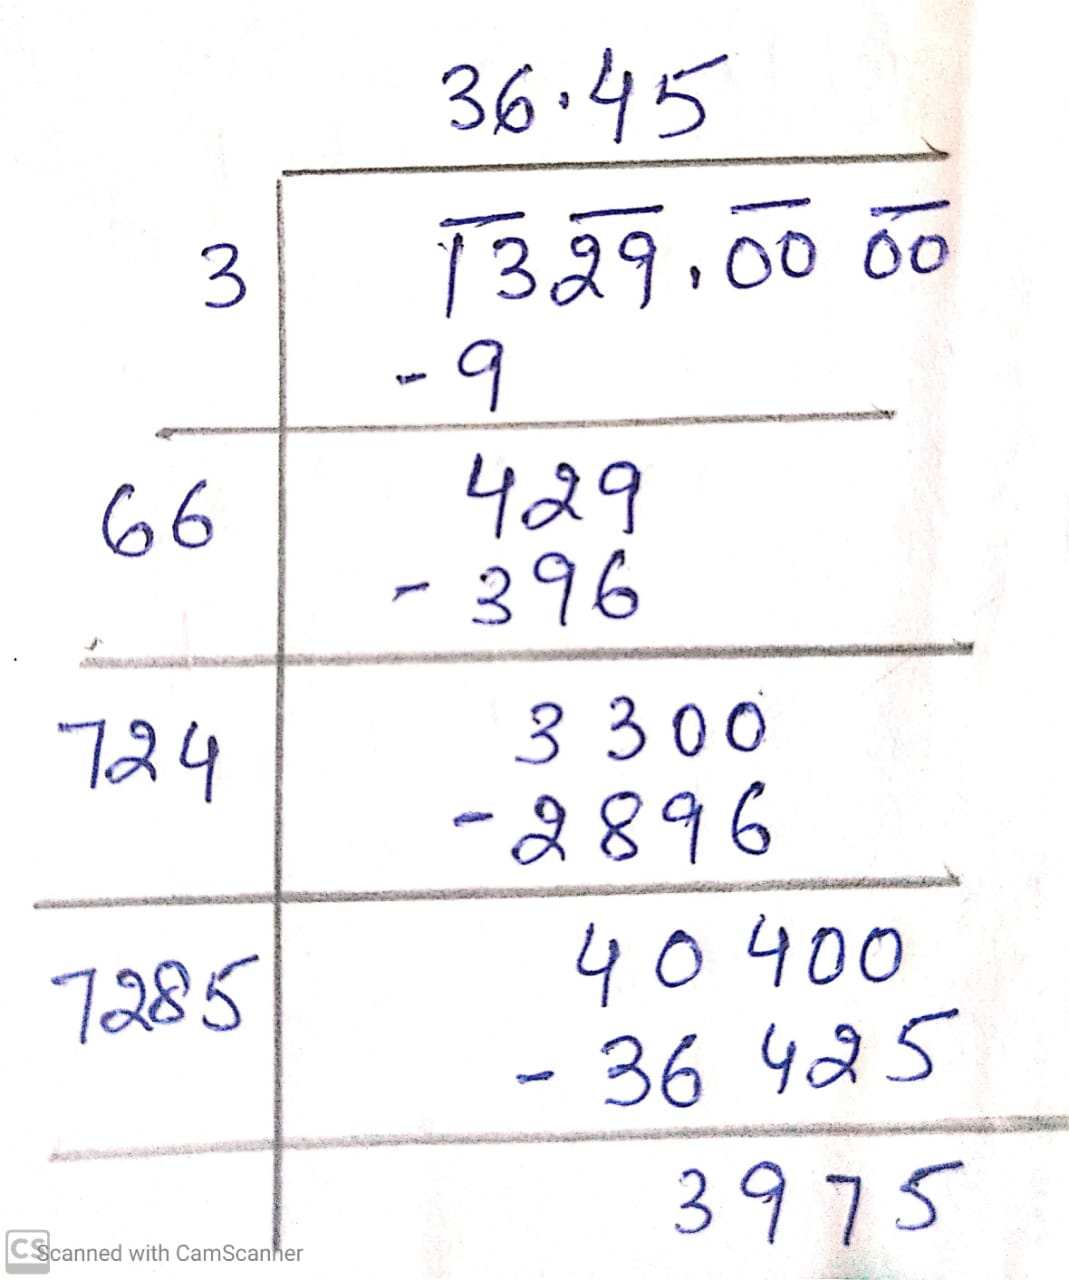 36.45
3 1329.00 00
-9
66 429
-396
724 3300
-2896
7285 40400
-36425
3975
CS Scanned with CamScanner